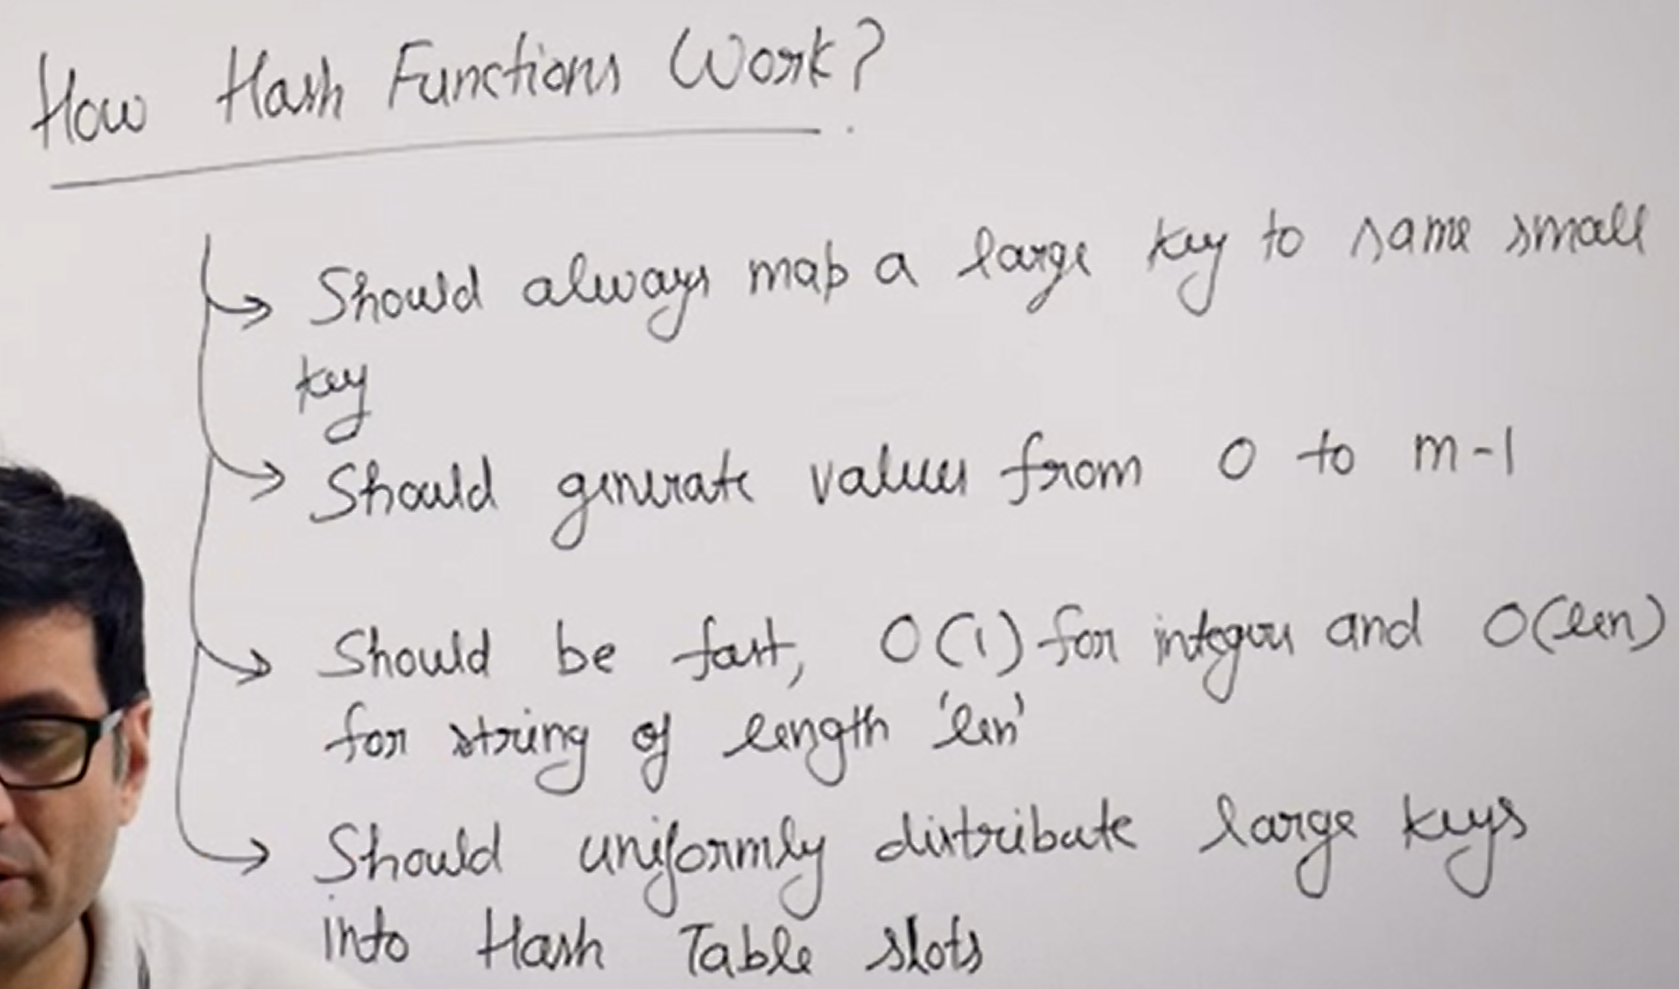 How Hash Functions Work?
Should always map a large key to same small
key
Should generate values from 0 to m-1
Should be fast, O(1) for integers and O(len)
for string of length 'len'
Should uniformly distribute large keys
into Hash Table slots